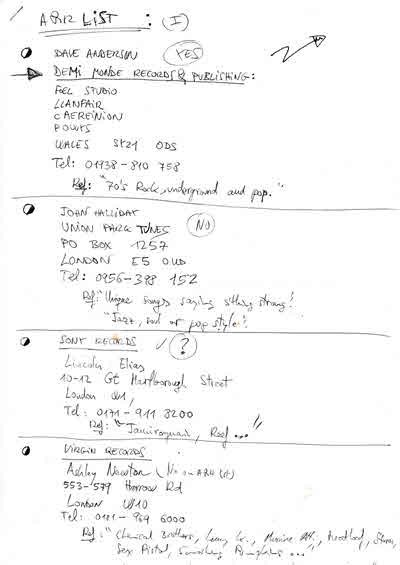 A&R LIST : (I)
DAVE ANDERSON YES
DEMI MONDE RECORDS & PUBLISHING:
FEL STUDIO
LLANFAIR
CAEREINION
POWYS
WALES SY21 ODS
Tel: 01938-810 758
Ref: "70's Rock, underground and pop."
JOHN HALLIDAY
UNION PARK TUNES NO
PO BOX 1257
LONDON E5 0UD
Tel: 0956-398 152
Ref: "Unique songs saying sthing strong!
"Jazz, soul or pop style!"
SONY RECORDS ✓ ?
Lincoln Elias
10-12 Gt Marlborough Street
London W1,
Tel: 0171-911 8200
Ref: "Jamiroquai, Reef ..."
VIRGIN RECORDS
Ashley Newton (No on A&R list)
553-579 Harrow Rd
London W10
Tel: 0181-969 6000
Ref: "Chemical Brothers, Lenny Kr., Massive Att., Meatloaf,
Sex Pistol, Smashing Pumpkins ..."